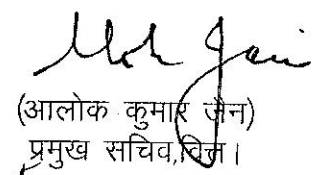 Alok Jain
(आलोक कुमार जैन)
प्रमुख सचिव,वित्त।